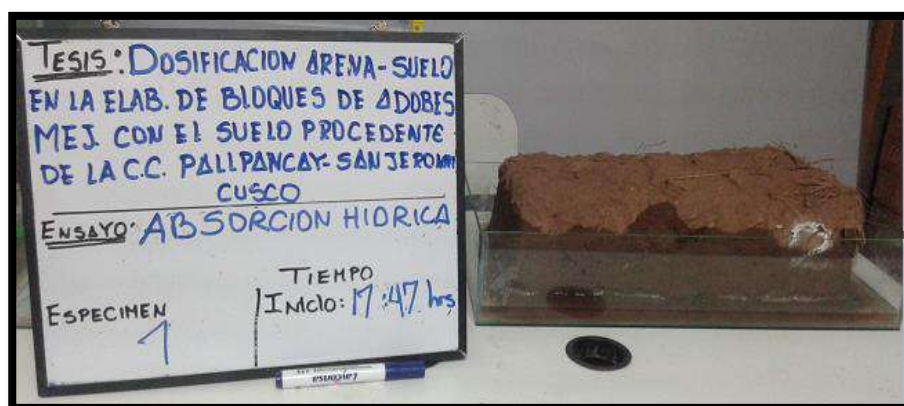 TESIS: DOSIFICACION ARENA-SUELO
EN LA ELAB. DE BLOQUES DE ADOBES
MEJ. CON EL SUELO PROCEDENTE
DE LA C.C. PALLPANCAY-SAN JERONIMO
CUSCO
ENSAYO: ABSORCION HIDRICA
TIEMPO
ESPECIMEN
1
INICIO: 17:47 hrs